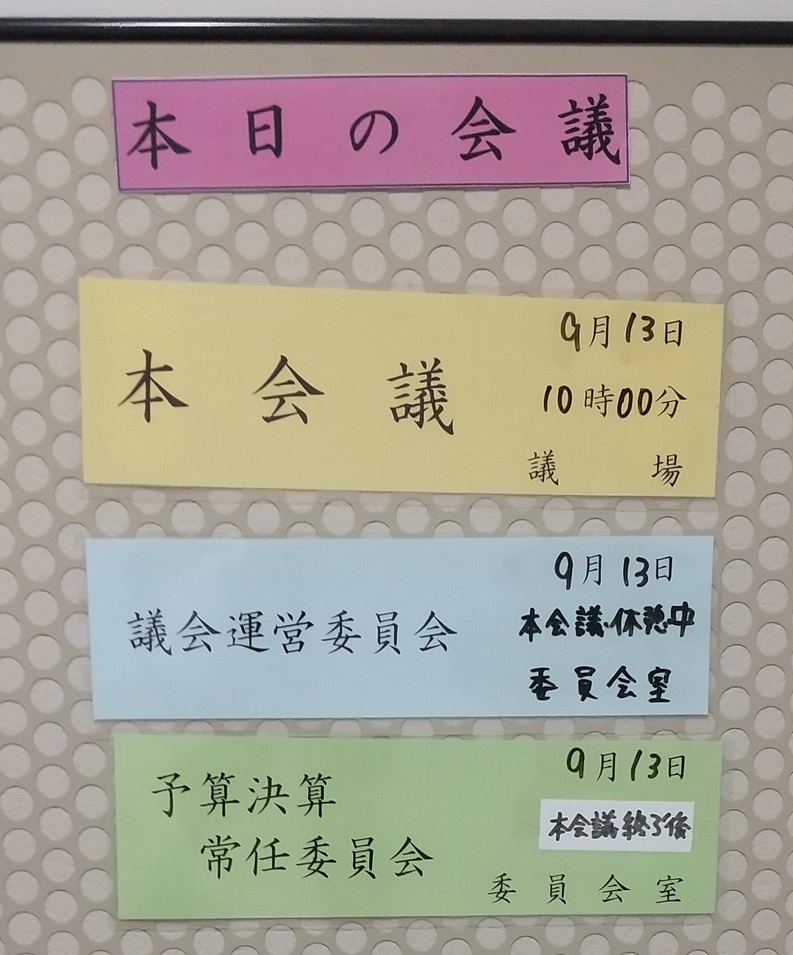 本日の会議
本会議
9月13日
10時00分
議場
議会運営委員会
9月13日
本会議休憩中
委員会室
予算決算
常任委員会
9月13日
本会議終了後
委員会室